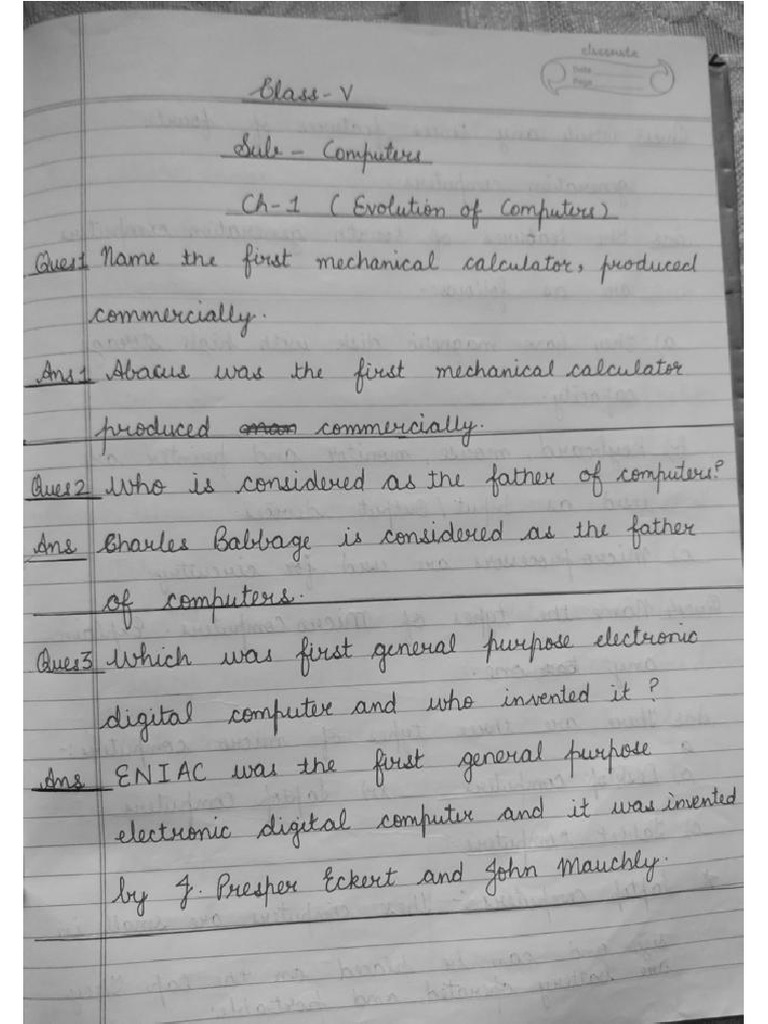 classmate
Date
Page
Class - V
Sub - Computers
Ch-1 (Evolution of Computers)
Ques1 Name the first mechanical calculator, produced
commercially.
Ans1 Abacus was the first mechanical calculator
produced commercially.
Ques2 Who is considered as the father of computers?
Ans Charles Babbage is considered as the father
of computers.
Ques3 Which was first general purpose electronic
digital computer and who invented it?
Ans ENIAC was the first general purpose
electronic digital computer and it was invented
by J. Presper Eckert and John Mauchly.